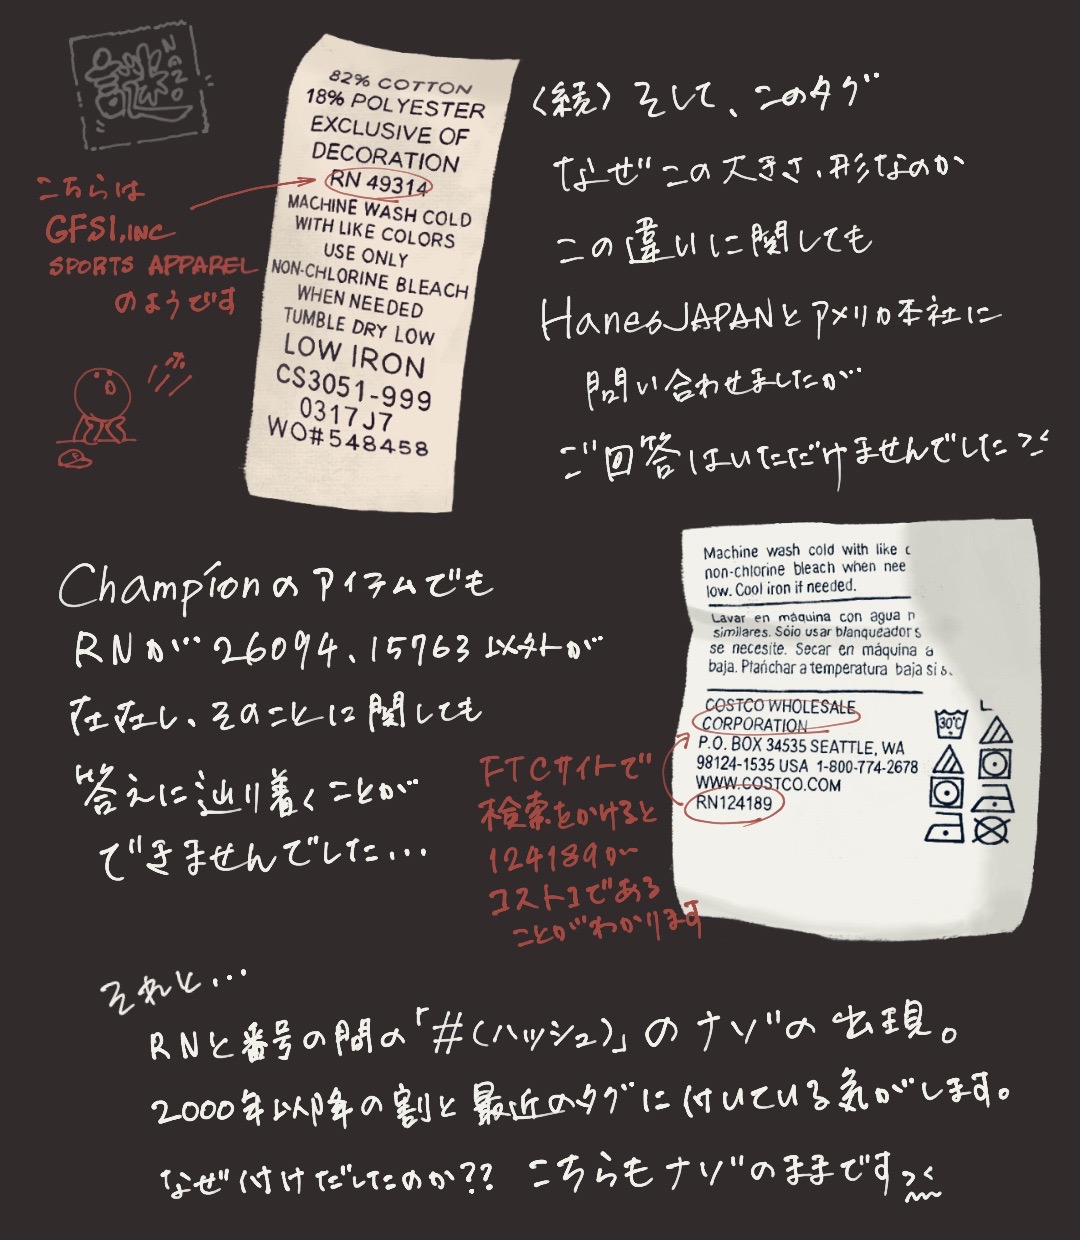 謎
NAZO
82% COTTON
18% POLYESTER
EXCLUSIVE OF
DECORATION
RN 49314
MACHINE WASH COLD
WITH LIKE COLORS
USE ONLY
NON-CHLORINE BLEACH
WHEN NEEDED
TUMBLE DRY LOW
LOW IRON
CS3051-999
0317J7
WO#548458
こちらは
GFSI,INC
SPORTS APPAREL
のようです
〈続〉そして、このタグ
なぜこの大きさ、形なのか
この違いに関しても
HanesJAPANとアメリカ本社に
問い合わせましたが
ご回答はいただけませんでした
Championのアイテムでも
RNが26094、15763以外が
存在し、そのことに関しても
答えに辿り着くことが
できませんでした...
Machine wash cold with like c
non-chlorine bleach when nee
low. Cool iron if needed.
Lavar en máquina con agua
similares. Sólo usar blanqueador s
se necesite. Secar en máquina a
baja. Planchar a temperatura baja si
COSTCO WHOLESALE
CORPORATION
P.O. BOX 34535 SEATTLE, WA
98124-1535 USA 1-800-774-2678
WWW.COSTCO.COM
RN124189
30°C
FTCサイトで
検索をかけると
124189が
コストコである
ことがわかります
それと...
RNと番号の間の「#(ハッシュ)」のナゾの出現。
2000年以降の割と最近のタグに付いている気がします。
なぜ付けだしたのか?? こちらもナゾのままです